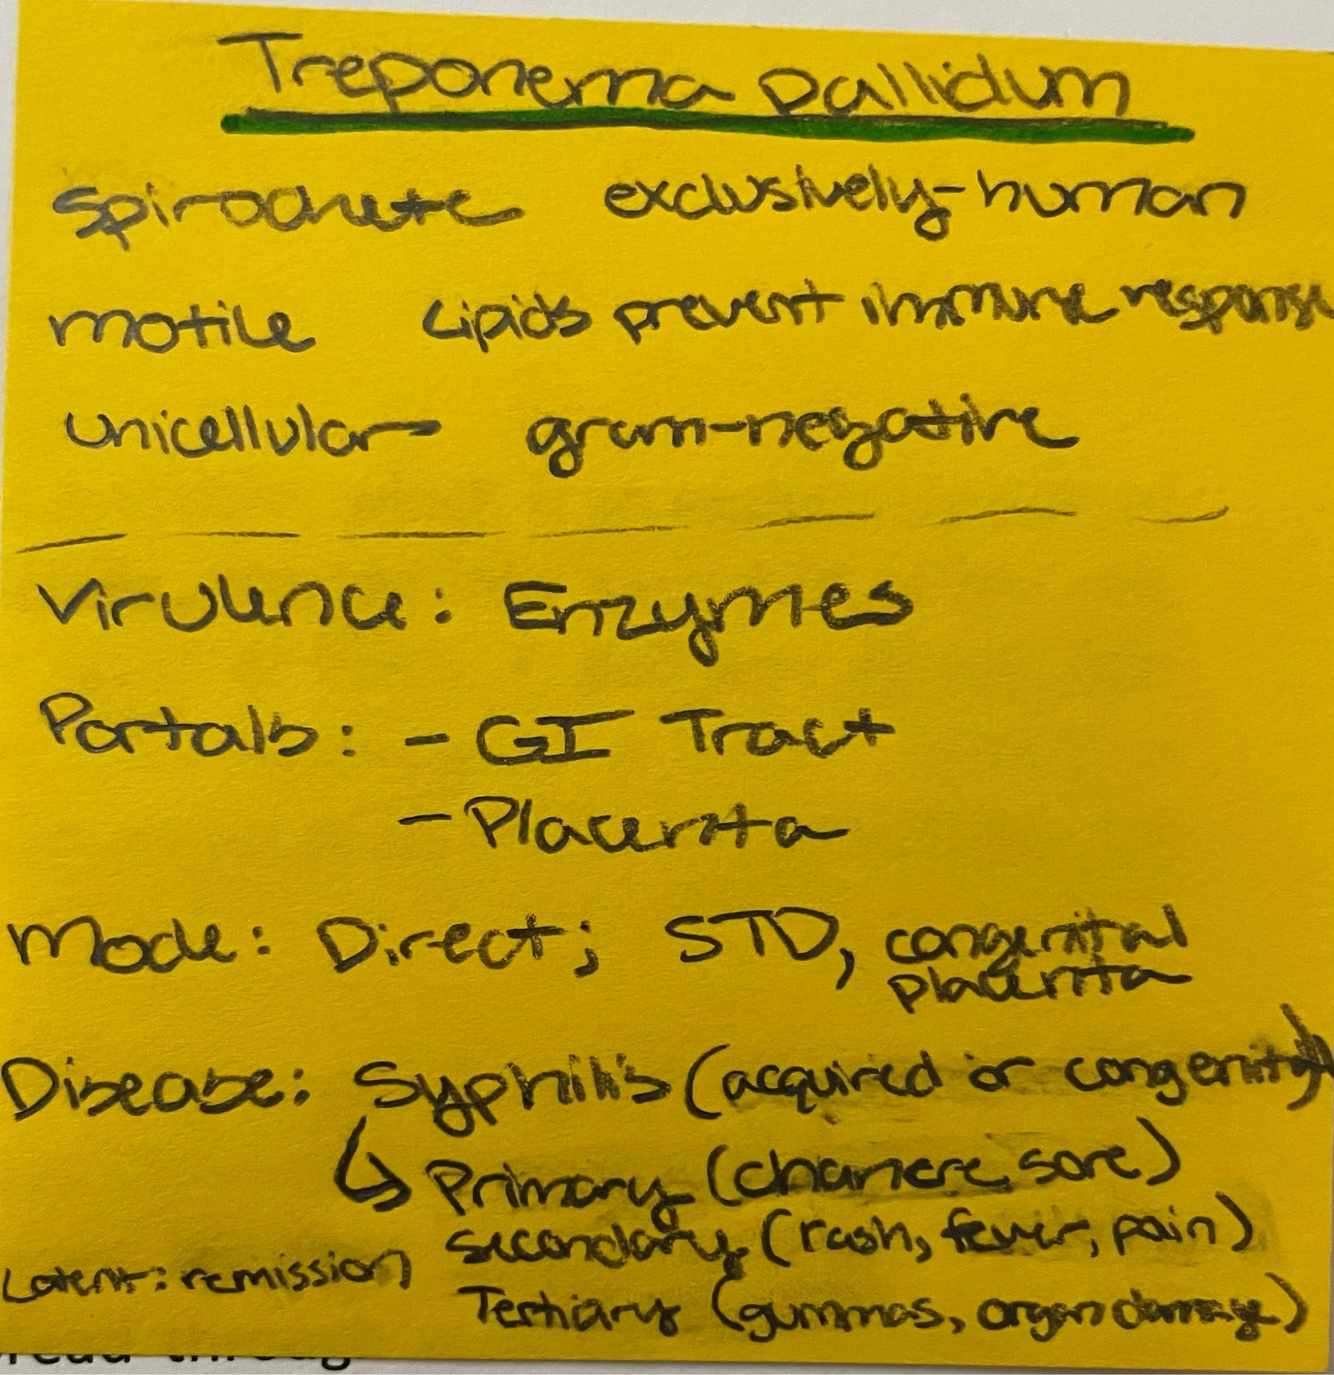 Treponema pallidum
Spirochete exclusively-human
motile Lipids prevent immune response
Unicellular gram-negative
Virulence: Enzymes
Portals: - GI Tract
- Placenta
Mode: Direct; STD, congenital
placenta
Disease: Syphilis (acquired or congenital)
↳ Primary (chancre sore)
Secondary (rash, fever, pain)
Latent: remission
Tertiary (gummas, organ damage)
read throug